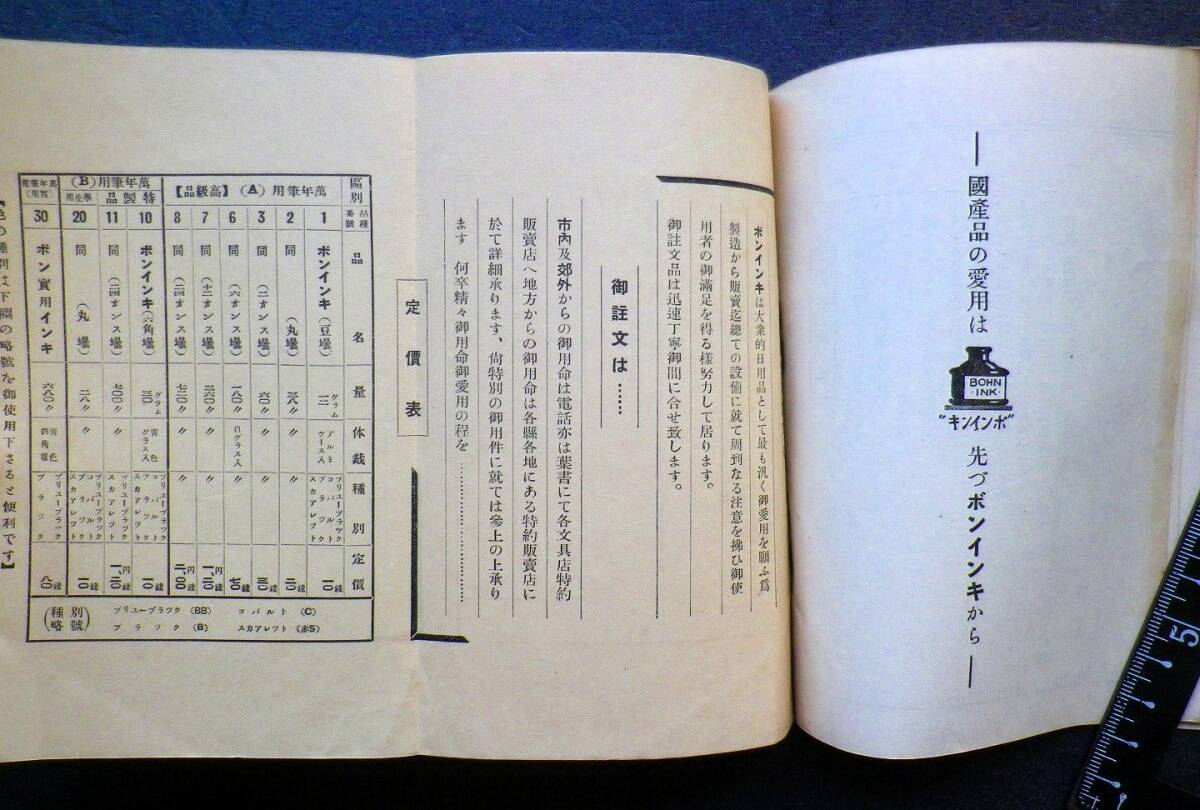 國產品の愛用は
BOHN
INK
"ボンインキ"
先づボンインキから
ボンインキは大衆的日用品として最も汎く御愛用を願ふ爲
製造から販賣迄總ての設備に就て周到なる注意を拂ひ御使
用者の御滿足を得る樣努力して居ります。
御註文品は迅速丁寧御間に合せ致します。
御註文は……
市內及郊外からの御用命は電話亦は葉書にて各文具店特約
販賣店へ地方からの御用命は各縣各地にある特約販賣店に
於て詳細承ります、尙特別の御用件に就ては參上の上承り
ます 何卒精々御用命御愛用の程を……………………
定價表
區別
萬年筆用(A)【高級品】
萬年筆用(B)
特製品
學生用
品種番號
品名
量
体裁
種別
定價
1 ボンインキ(豆壜) 三グラム アルミケース入 ブリユーブラツク コバルト ブラツク スカアレツト 一〇錢
2 同 (丸壜) 二八〃 〃 二〇錢
3 同 (二オンス壜) 六〇〃 〃 三〇錢
6 同 (六オンス壜) 一八〇〃 白グラス入 〃 七〇錢
7 同 (十二オンス壜) 三六〇〃 〃 〃 一、二〇円錢
8 同 (二四オンス壜) 七二〇〃 〃 〃 二、〇〇円錢
10 ボンインキ(六角壜) グラム 靑色グラス入 ブリユーブラツク コバルト ブラツク スカアレツト 一〇錢
11 同 (二四オンス壜) 七〇〇〃 〃 ブリユーブラツク スカアレツト 一、二〇円錢
20 同 (丸壜) 二八〃 〃 ブリユーブラツク コバルト ブラツク スカアレツト 一〇錢
30 ボン實用インキ 六八〇〃 靑色四角壜 ブリユーブラツク ブラツク 八〇錢
(種別略號)
ブリユーブラツク (BB) コバルト (C)
ブラツク (B) スカアレツト (赤S)
の種別は下欄の略號を御使用下さると便利です】
5